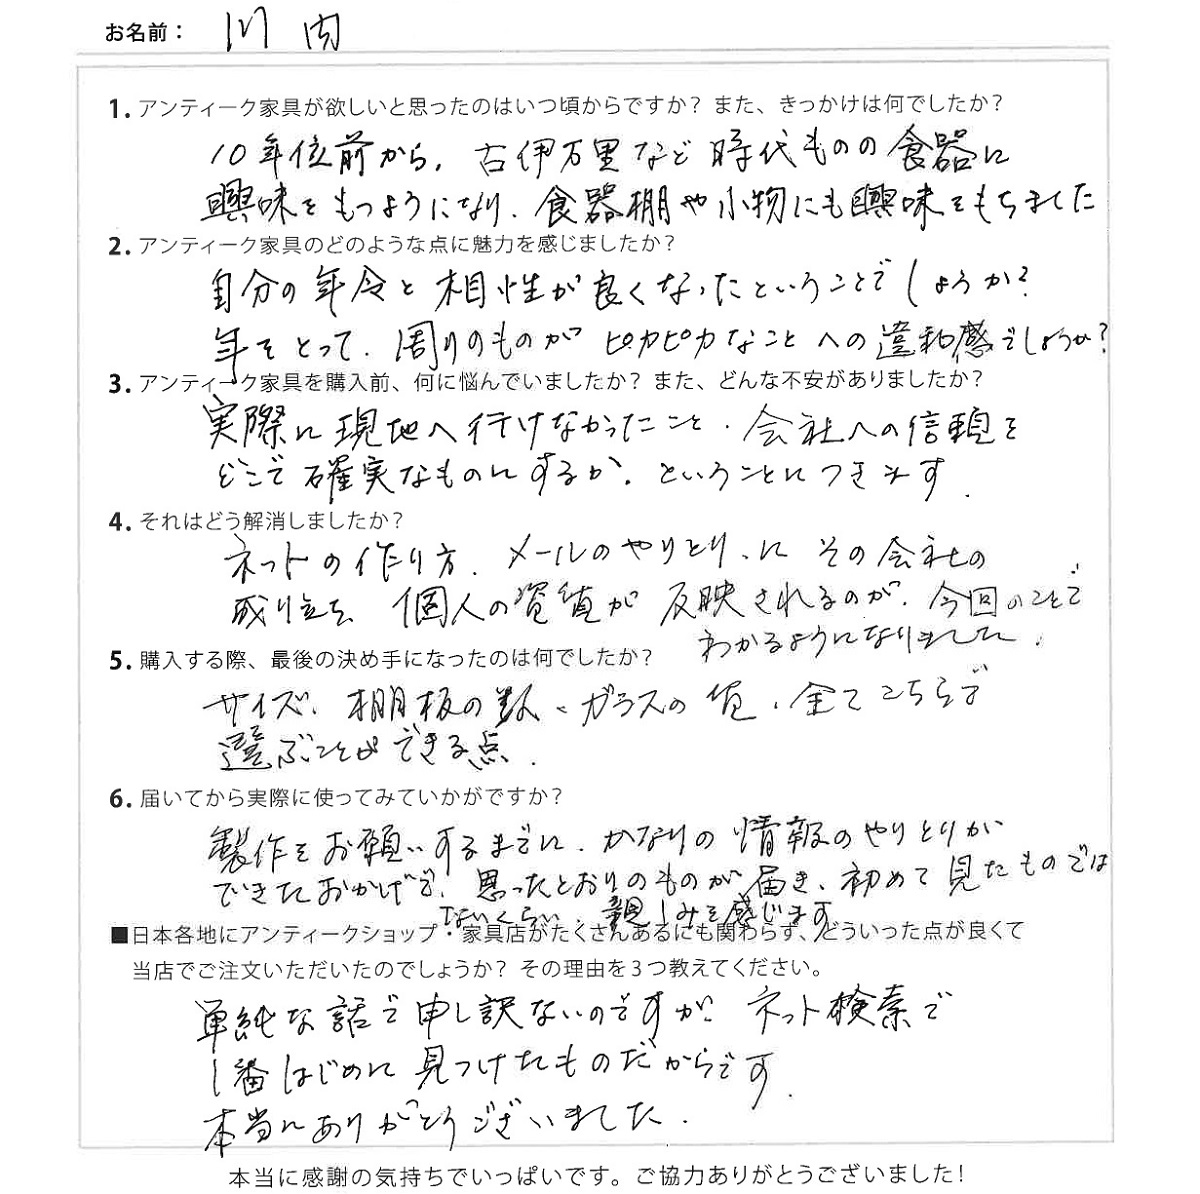 お名前： 川内
1. アンティーク家具が欲しいと思ったのはいつ頃からですか？ また、きっかけは何でしたか？
10年位前から、古伊万里など時代ものの食器に
興味をもつようになり、食器棚や小物にも興味をもちました
2. アンティーク家具のどのような点に魅力を感じましたか？
自分の年令と相性が良くなったということでしょうか？
年をとって、周りのものがピカピカなことへの違和感でしょうか？
3. アンティーク家具を購入前、何に悩んでいましたか？ また、どんな不安がありましたか？
実際に現地へ行けなかったこと、会社への信頼を
どこで確実なものにするか、ということにつきます。
4. それはどう解消しましたか？
ネットの作り方、メールのやりとり、にその会社の
成り立ち、個人の資質が反映されるのが、今回のことで
わかるようになりました。
5. 購入する際、最後の決め手になったのは何でしたか？
サイズ、棚板の数、ガラスの質、全てこちらで
選ぶことができる点。
6. 届いてから実際に使ってみていかがですか？
製作をお願いするまでに、かなりの情報のやりとりが
できたおかげで、思ったとおりのものが届き、初めて見たものでは
ないくらい、親しみを感じます
■日本各地にアンティークショップ・家具店がたくさんあるにも関わらず、どういった点が良くて
当店でご注文いただいたのでしょうか？ その理由を3つ教えてください。
単純な話で申し訳ないのですが、ネット検索で
1番はじめに見つけたものだからです。
本当にありがとうございました。
本当に感謝の気持ちでいっぱいです。ご協力ありがとうございました！